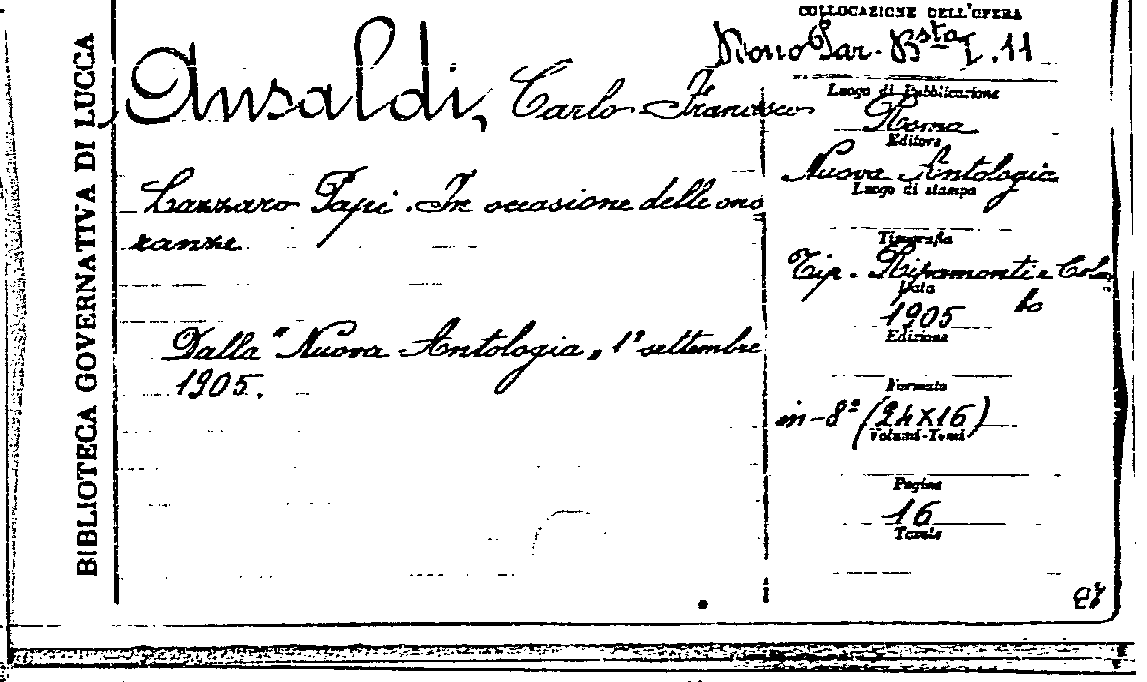 BIBLIOTECA GOVERNATIVA DI LUCCA
Ansaldi, Carlo Francesco
Lazzaro Papi. In occasione delle ono
ranze
Dalla "Nuova Antologia„ 1° settembre
1905.
COLLOCAZIONE DELL'OPERA
Mono Gar. Bsta I. 11
Luogo di Pubblicazione
Roma
Editore
Nuova Antologia
Luogo di stampa
Tipografia
Tip. Ripamonti e Colom
bo
Data
1905
Edizione
Formato
in-8° (24X16)
Volumi-Tomi
Pagine
16
Tavole